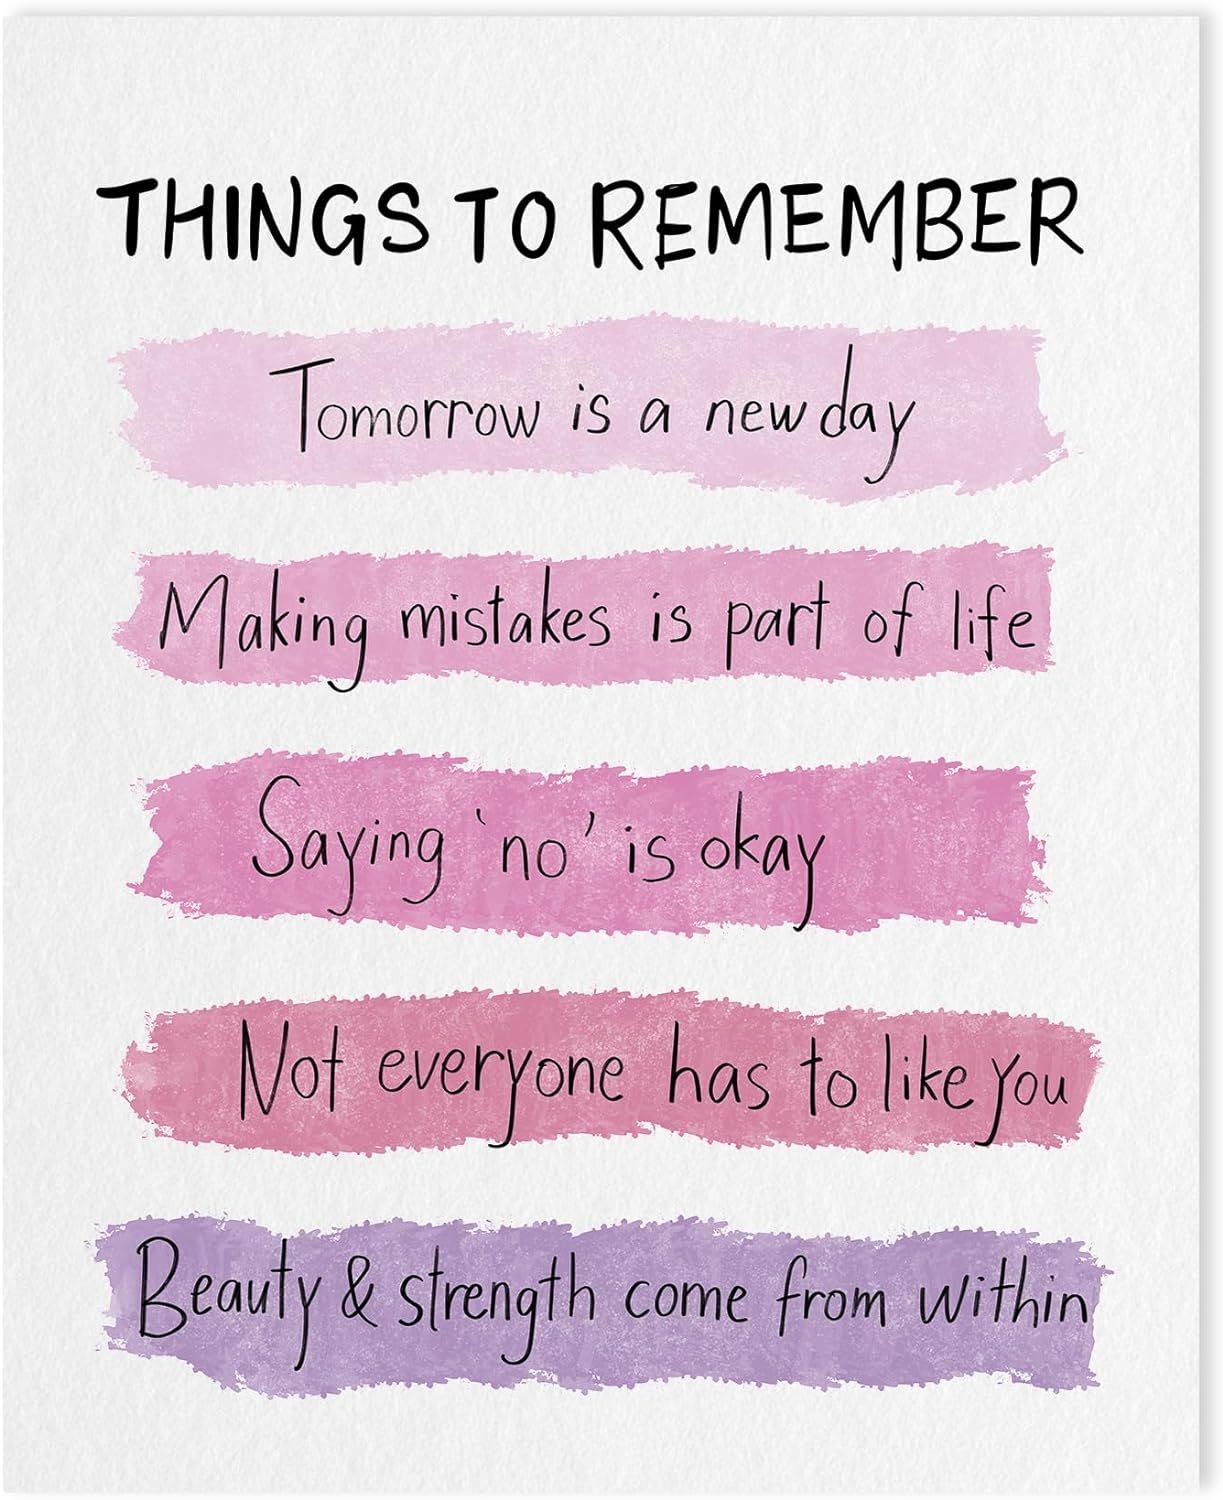 THINGS TO REMEMBER
Tomorrow is a new day
Making mistakes is part of life
Saying 'no' is okay
Not everyone has to like you
Beauty & strength come from within